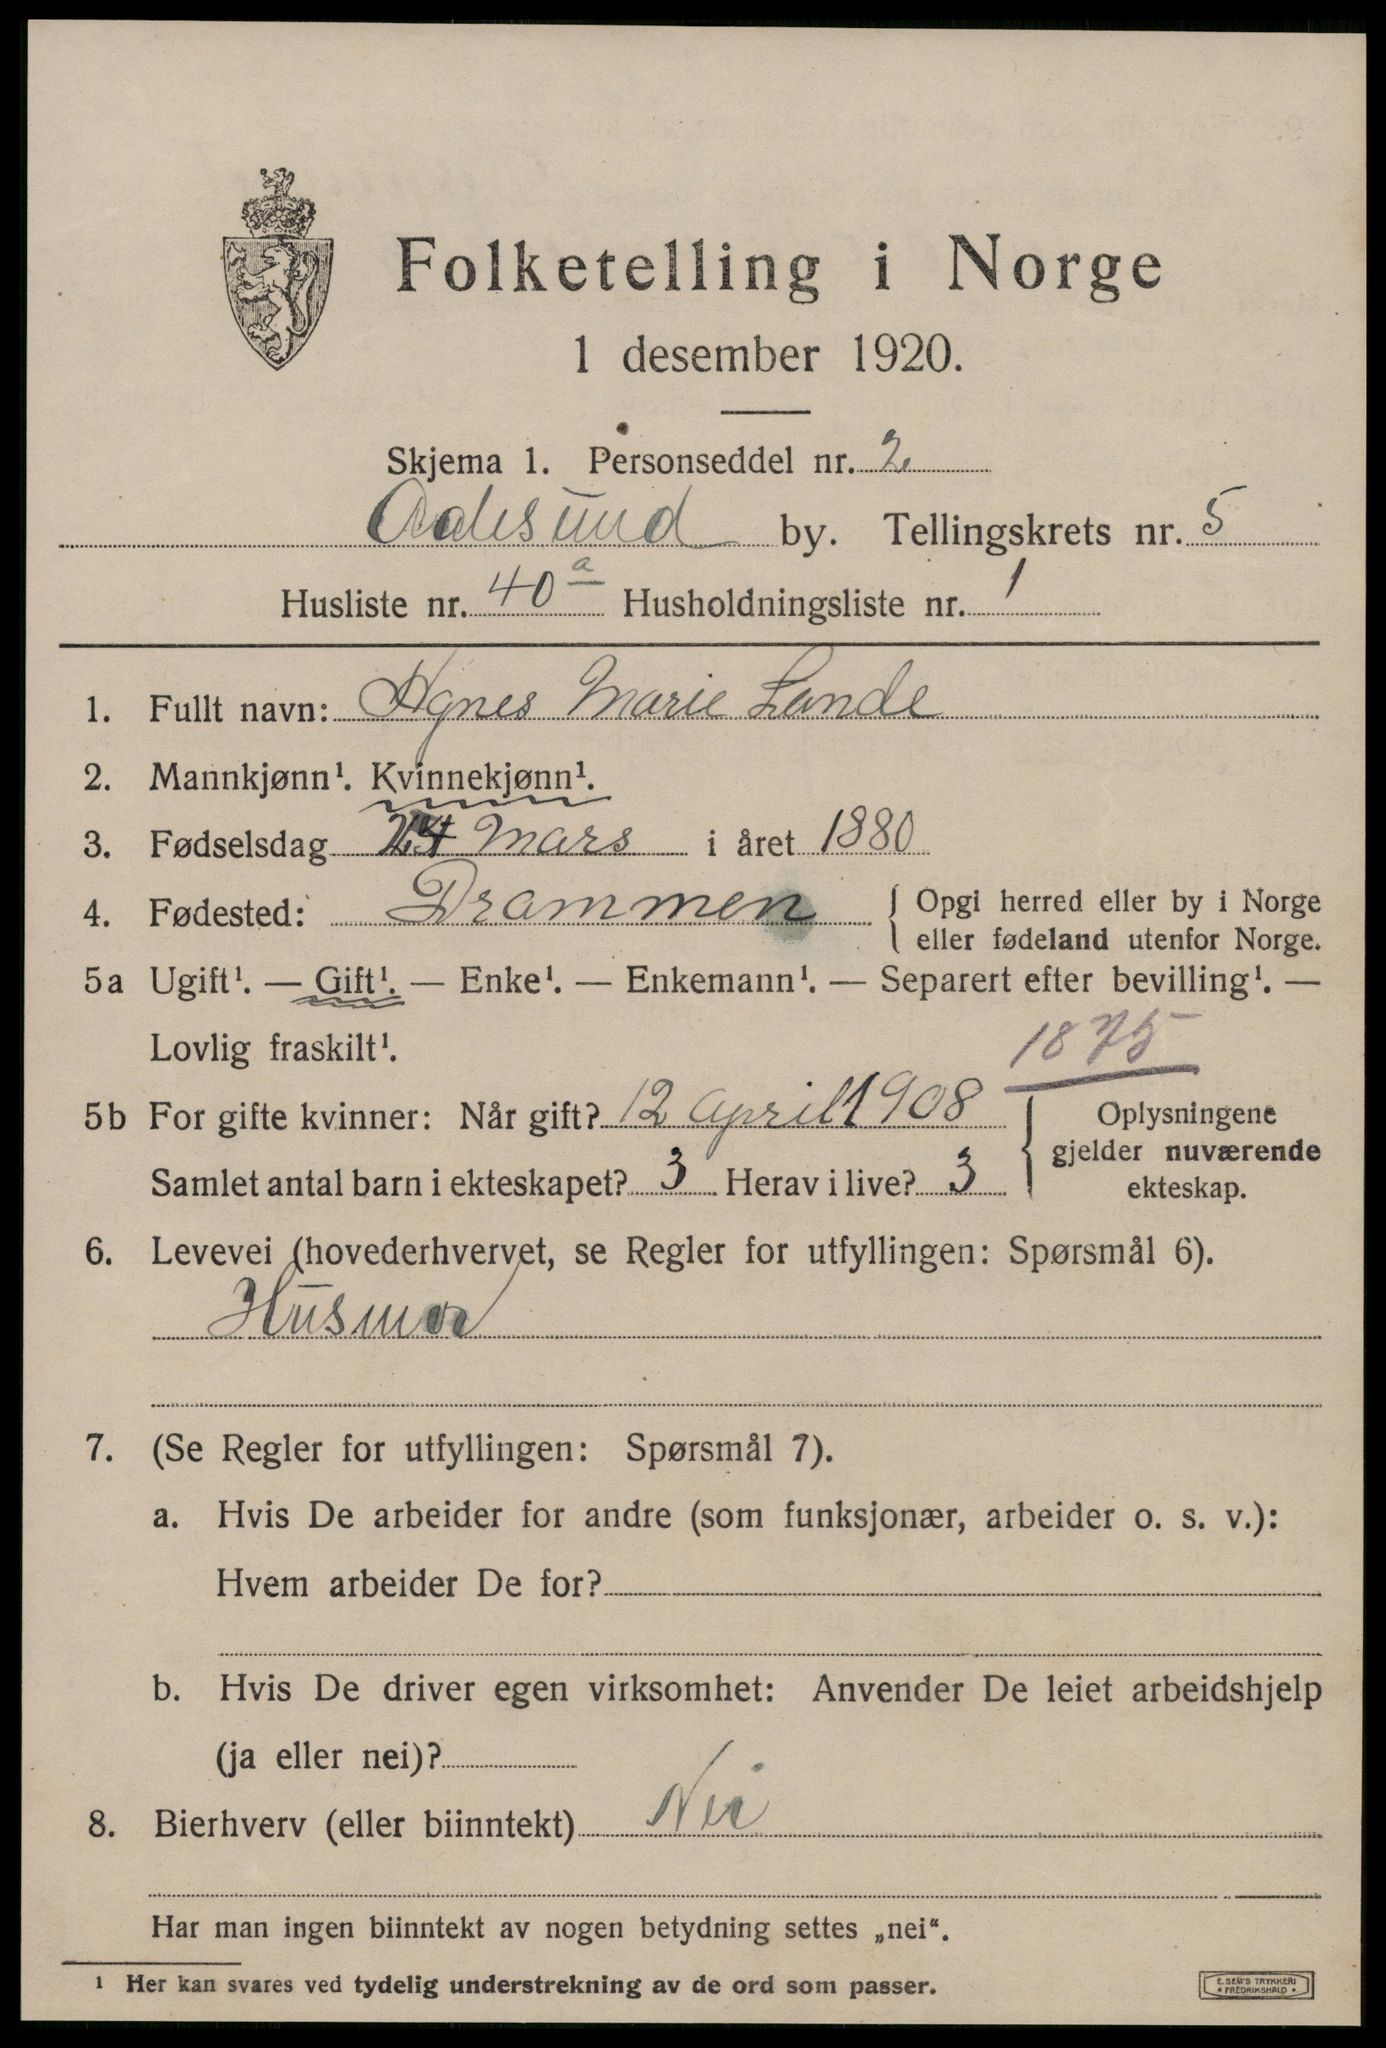 Folketelling i Norge
1 desember 1920.
Skjema 1. Personseddel nr. 2
Aalesund by. Tellingskrets nr. 5
Husliste nr. 40 a Husholdningsliste nr. 1
1. Fullt navn: Agnes Marie Lande
2. Mannkjønn¹. Kvinnekjønn¹.
3. Fødselsdag 24 Mars i året 1880
4. Fødested: Drammen { Opgi herred eller by i Norge
eller fødeland utenfor Norge.
5a Ugift¹. — Gift¹. — Enke¹. — Enkemann¹. — Separert efter bevilling¹. —
Lovlig fraskilt¹. 1875
5b For gifte kvinner: Når gift? 12 april 1908 { Oplysningene
gjelder nuværende
Samlet antal barn i ekteskapet? 3 Herav i live? 3 ekteskap.
6. Levevei (hovederhvervet, se Regler for utfyllingen: Spørsmål 6).
Husmor
7. (Se Regler for utfyllingen: Spørsmål 7).
a. Hvis De arbeider for andre (som funksjonær, arbeider o. s. v.):
Hvem arbeider De for?
b. Hvis De driver egen virksomhet: Anvender De leiet arbeidshjelp
(ja eller nei)?
8. Bierhverv (eller biinntekt) Nei
Har man ingen biinntekt av nogen betydning settes „nei“.
¹ Her kan svares ved tydelig understrekning av de ord som passer.
E. SEM'S TRYKKERI
• FREDRIKSHALD •